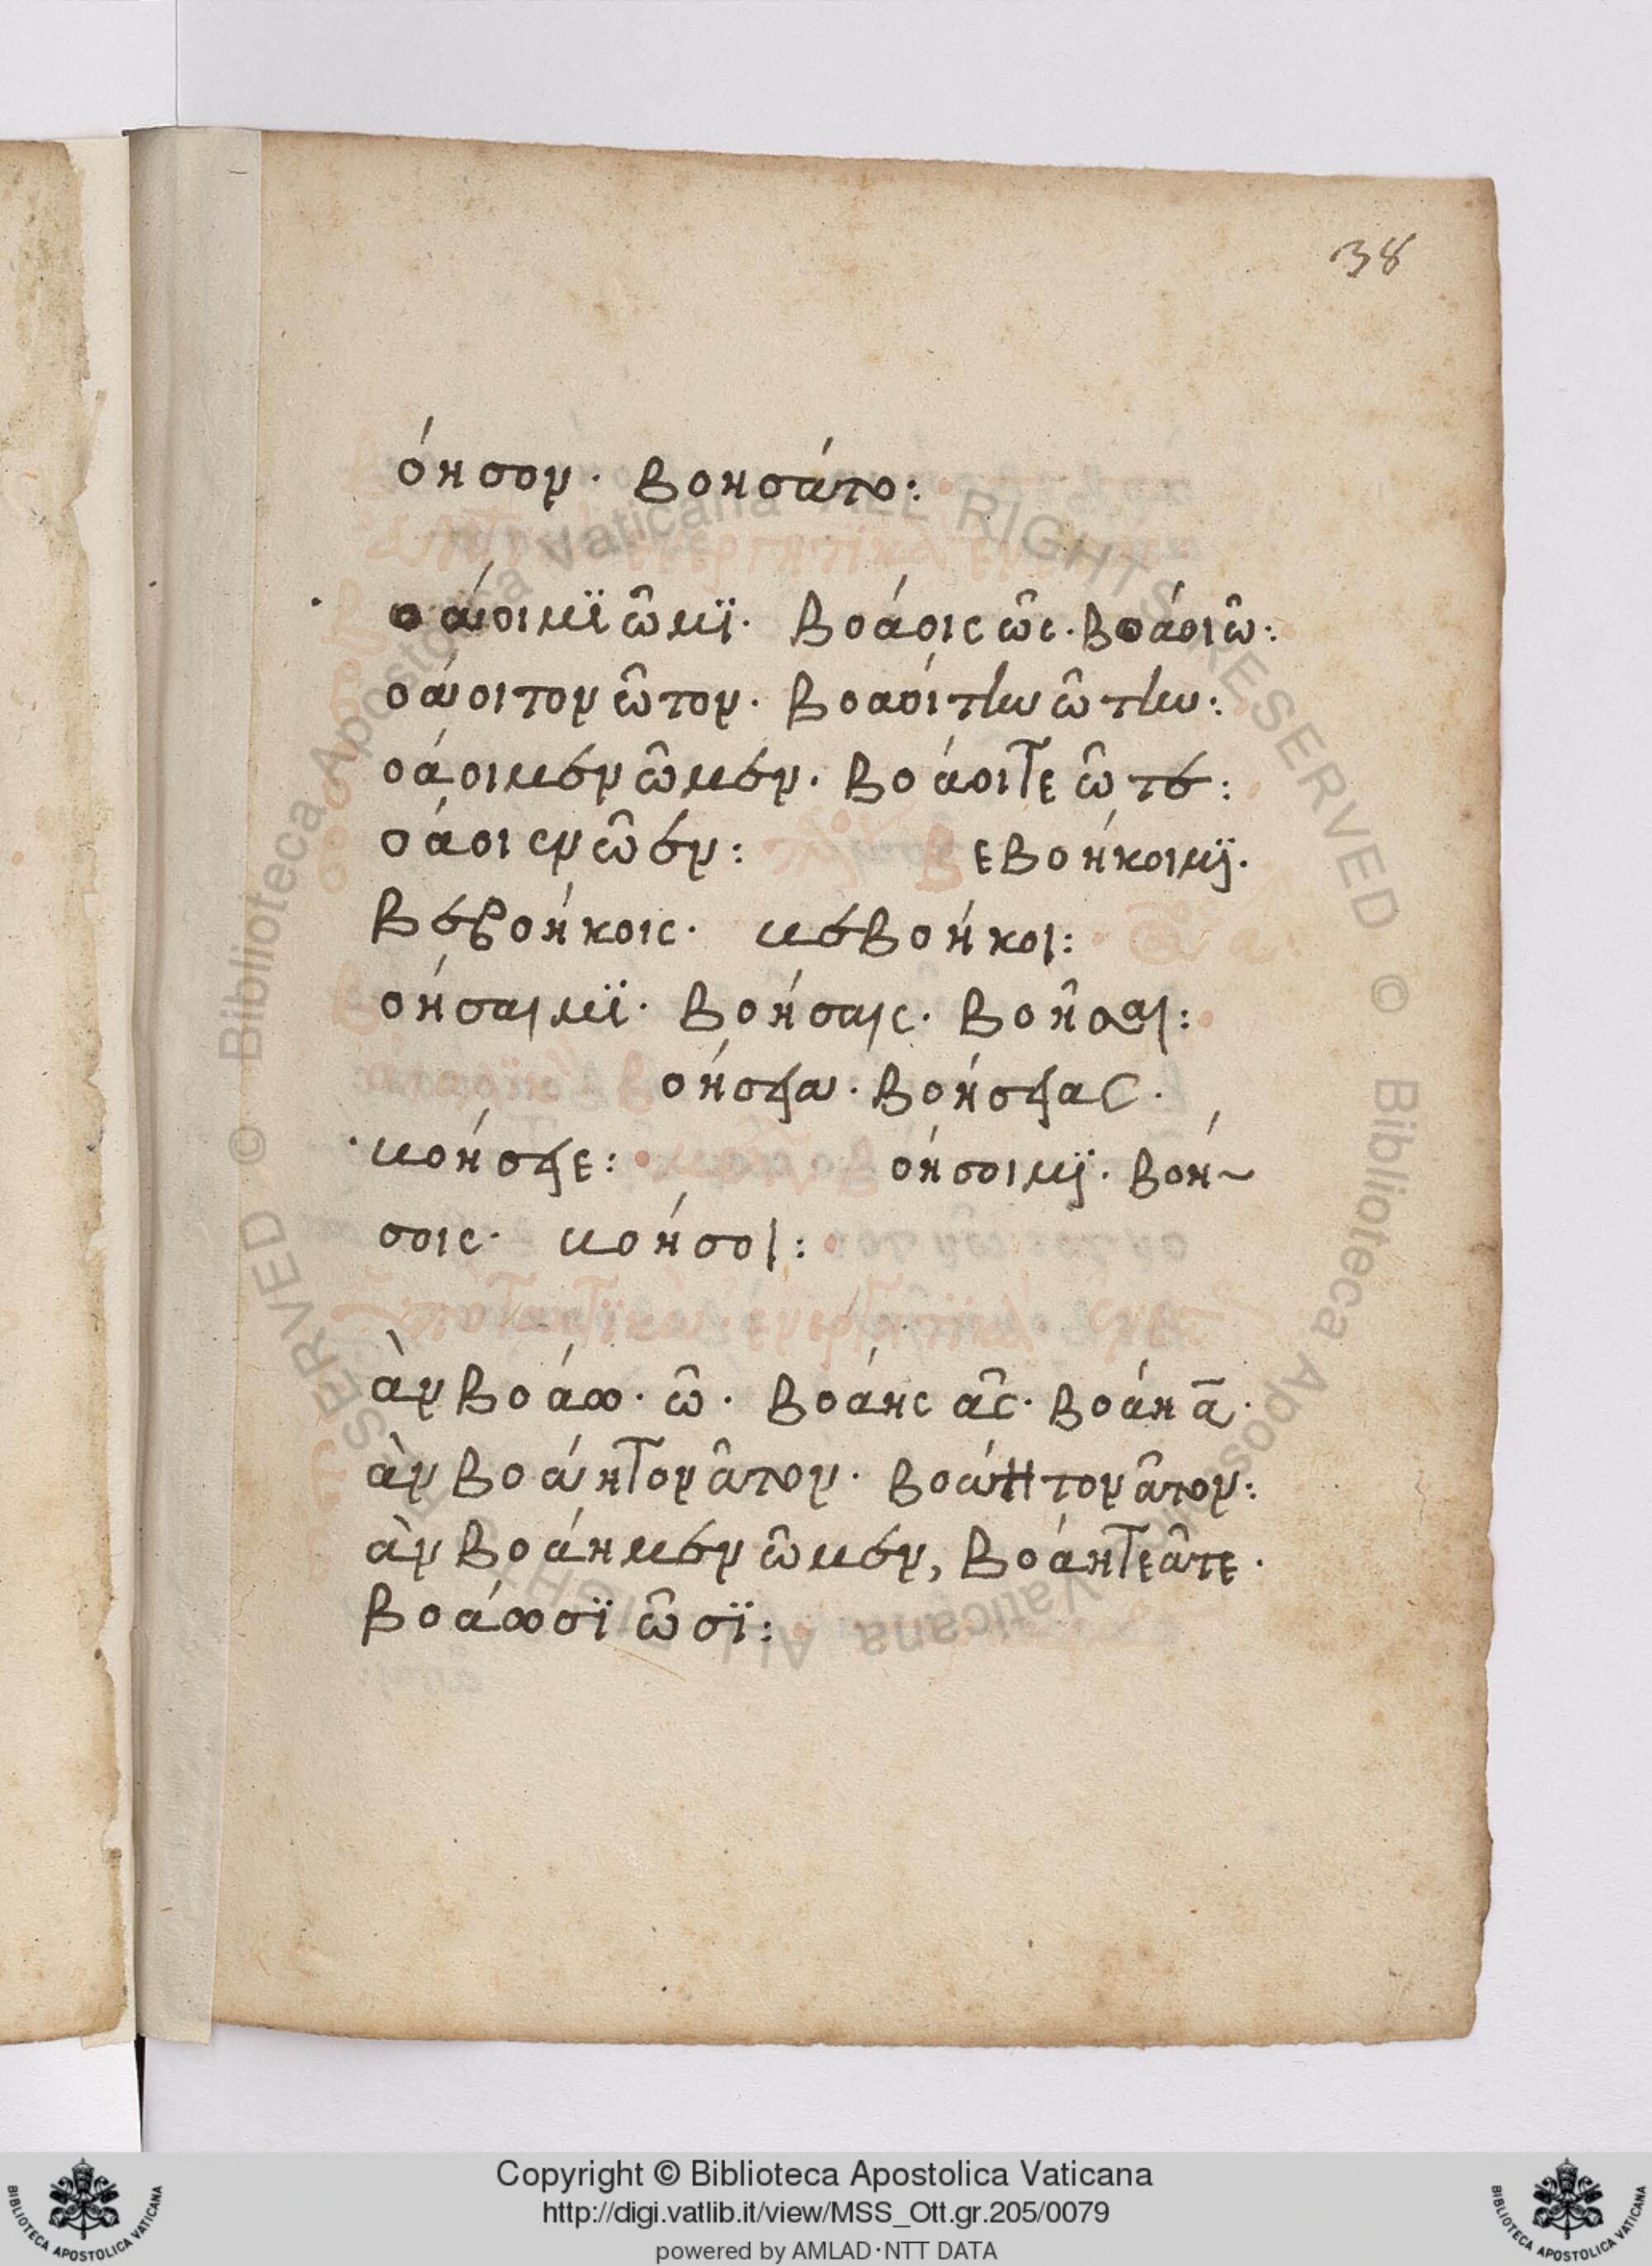 38
όησον· βοησάτο:
οάοιμϊ ῶμϊ· βοάοις ῶς· βοάοι ῶ:
οάοιτον ῶτον· βοαοίτην ώτην:
οάοιμεν ῶμεν· βοάοιτε ῶτε:
οάοιεν ῶεν: εβοήκοιμϊ·
βεβοήκοις· βεβοήκοι:
οήσαιμϊ· βοήσαις· βοῆσαι:
οήσεια· βοήσειας·
βοήσειε: οήσοιμϊ· βοή-
σοις· βοήσοι:
ὰν βοάω· ῶ· βοάης ᾶς· βοάη ᾶ·
ὰν βοάητον ᾶτον· βοάητον ᾶτον:
ὰν βοάημεν ῶμεν, βοάητε ᾶτε·
βοάωσϊ ῶσϊ:
© Biblioteca Apostolica Vaticana ALL RIGHTS RESERVED © Biblioteca Apostolica Vaticana ALL RIGHTS RESERVED
Copyright © Biblioteca Apostolica Vaticana
http://digi.vatlib.it/view/MSS_Ott.gr.205/0079
powered by AMLAD·NTT DATA
BIBLIOTECA APOSTOLICA VATICANA
BIBLIOTECA APOSTOLICA VATICANA